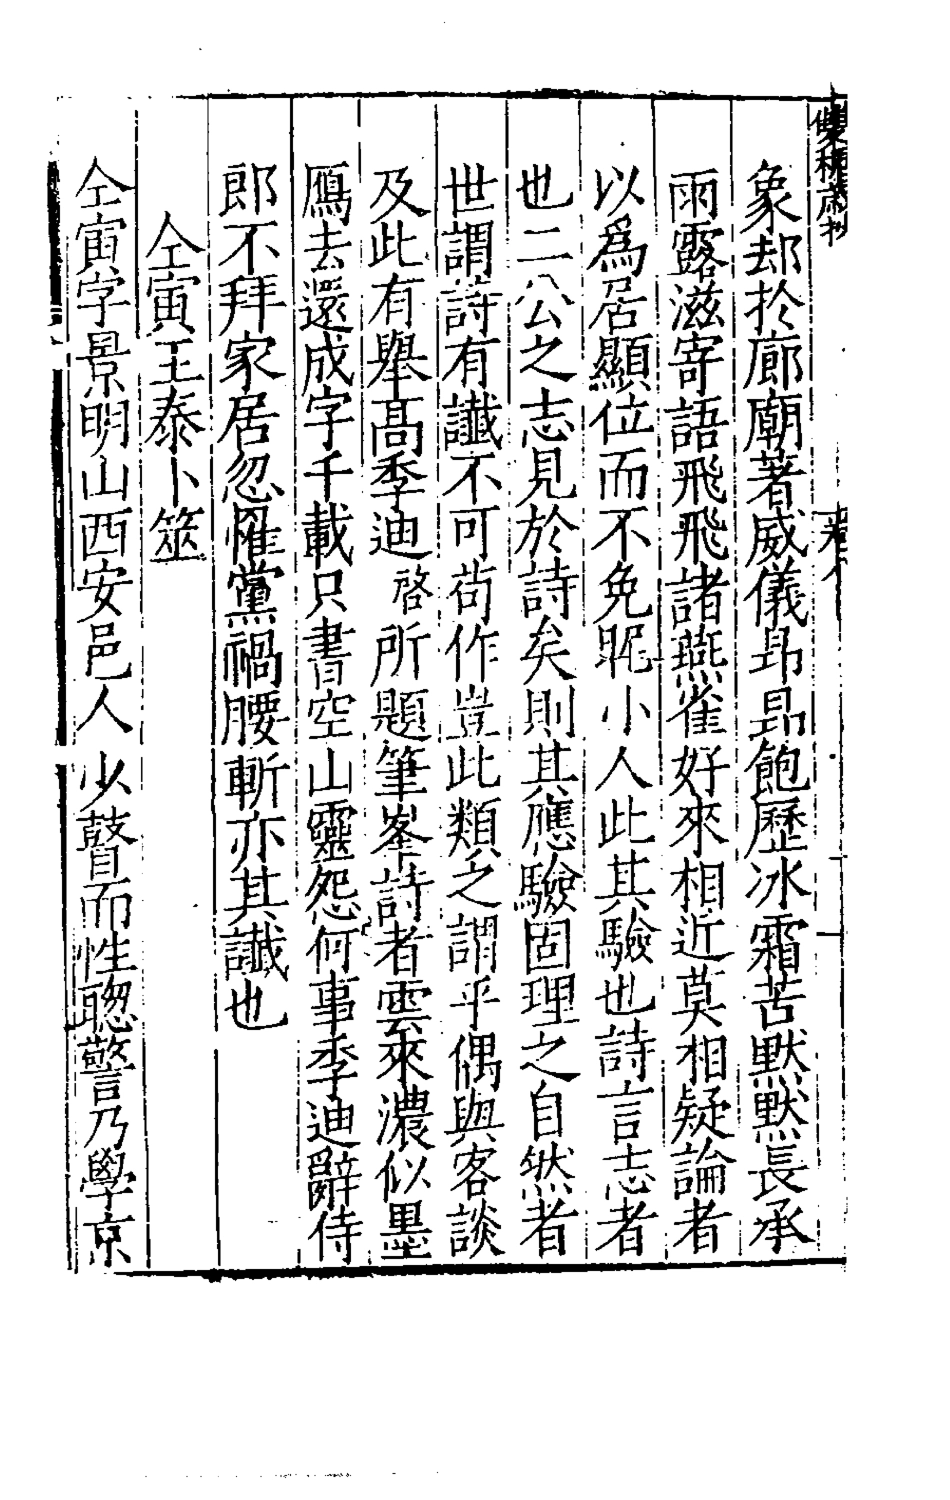 雙槐歲抄
卷八
象却於廊廟著威儀昻昻飽歷冰霜苦默默長承
雨露滋寄語飛飛諸燕雀好來相近莫相疑論者
以爲居顯位而不免昵小人此其驗也詩言志者
也二公之志見於詩矣則其應驗固理之自然者
世謂詩有讖不可苟作豈此類之謂乎偶與客談
及此有舉髙季迪啓所題筆峯詩者雲來濃似墨
鴈去還成字千載只書空山靈怨何事季迪辭侍
郎不拜家居忽罹黨禍腰斬亦其讖也
仝寅王泰卜筮
仝寅字景明山西安邑人少瞽而性聰警乃學京